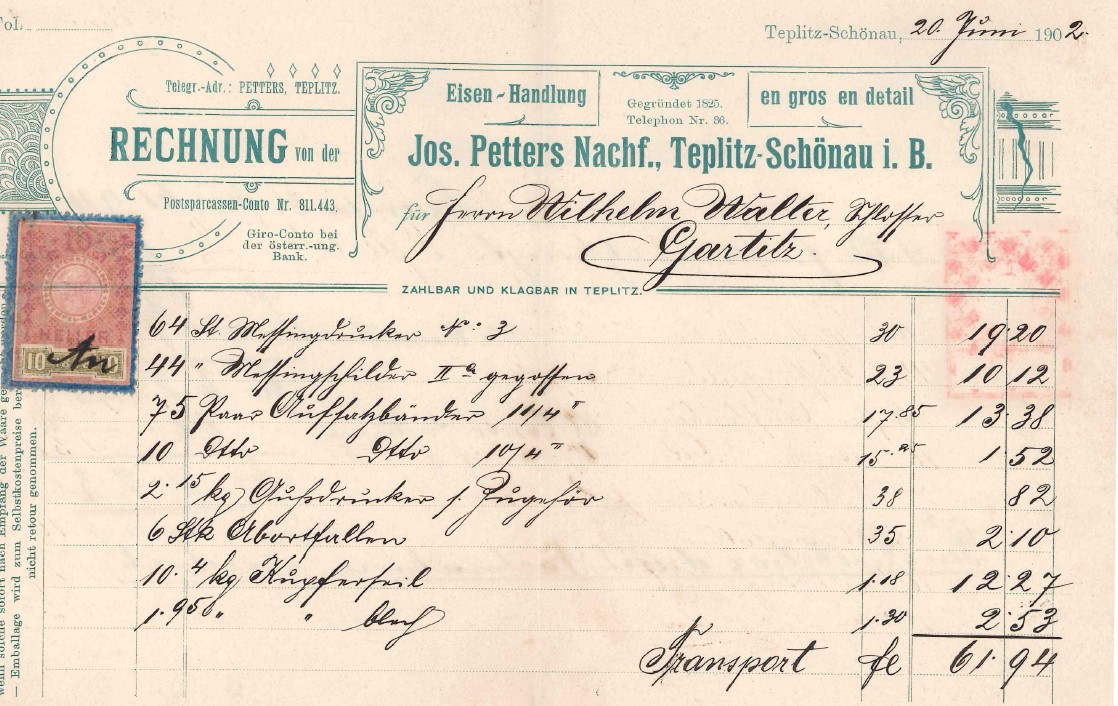 Fol.
Teplitz-Schönau, 20. Juni 1902.
Telegr.-Adr.: PETTERS, TEPLITZ.
RECHNUNG von der
Postsparcassen-Conto Nr. 811.443.
Giro-Conto bei
der österr.-ung.
Bank.
Eisen-Handlung
Gegründet 1825.
Telephon Nr. 36.
en gros en detail
Jos. Petters Nachf., Teplitz-Schönau i. B.
für Herrn Wilhelm Walter, Schlosser
Gartitz.
ZAHLBAR UND KLAGBAR IN TEPLITZ.
64 St. Messingdrucker No: 3 30 19 20
44 " Messingschilder IIa gegossen 23 10 12
75 Paar Aufsatzbänder 11/4" 17.85 13 38
10 Dtto Dtto 10/4" 15. 1 52
2.15 kg Gußdrucker s. Zugehör 38 82
6 Stk Abortfallen 35 2 10
10.4 kg Kupferseil 1.18 12 27
1.95 " " blech 1.30 2 53
Transport 61.94
10
wenn solche sofort nach Empfang der Waare
— Emballage wird zum Selbstkostenpreise
nicht retour genommen.